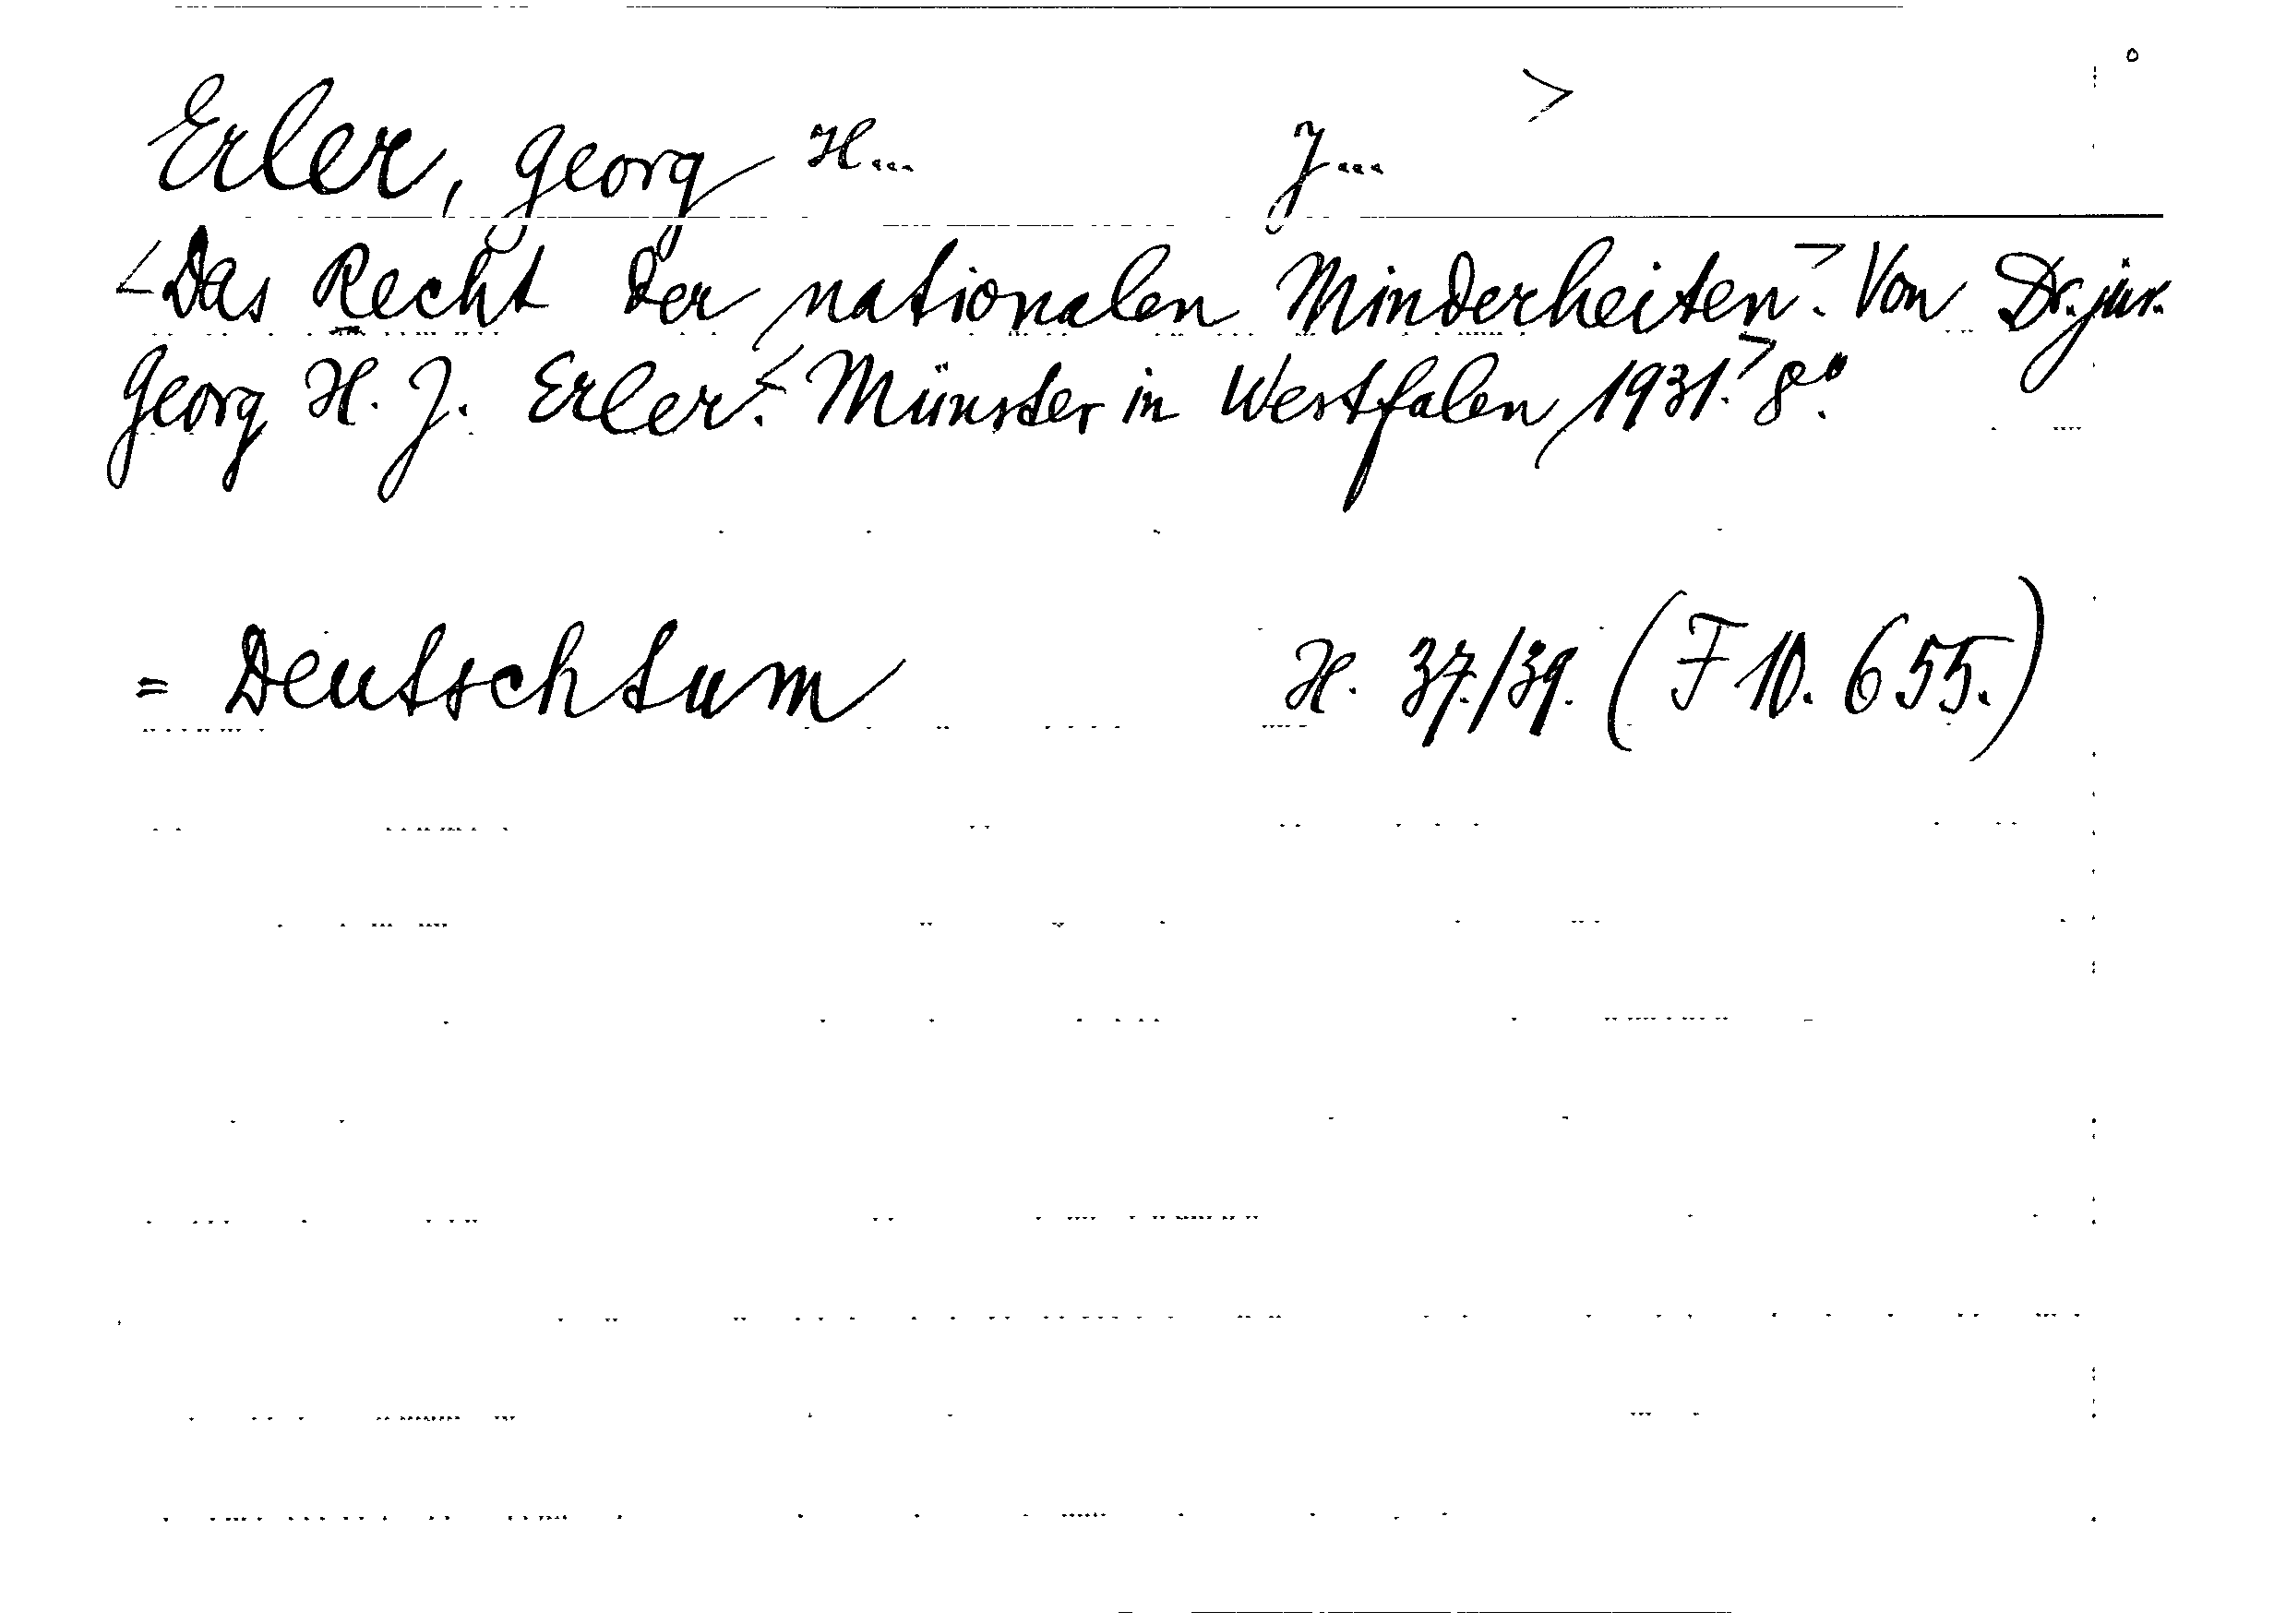 Erler, Georg H... J... >
<Das Recht der nationalen Minderheiten>. Von Dr. jur.
Georg H. J. Erler. <Münster in Westfalen, 1931.> 8°.
= Deutschtum H. 37./39. (F 10. 655.)